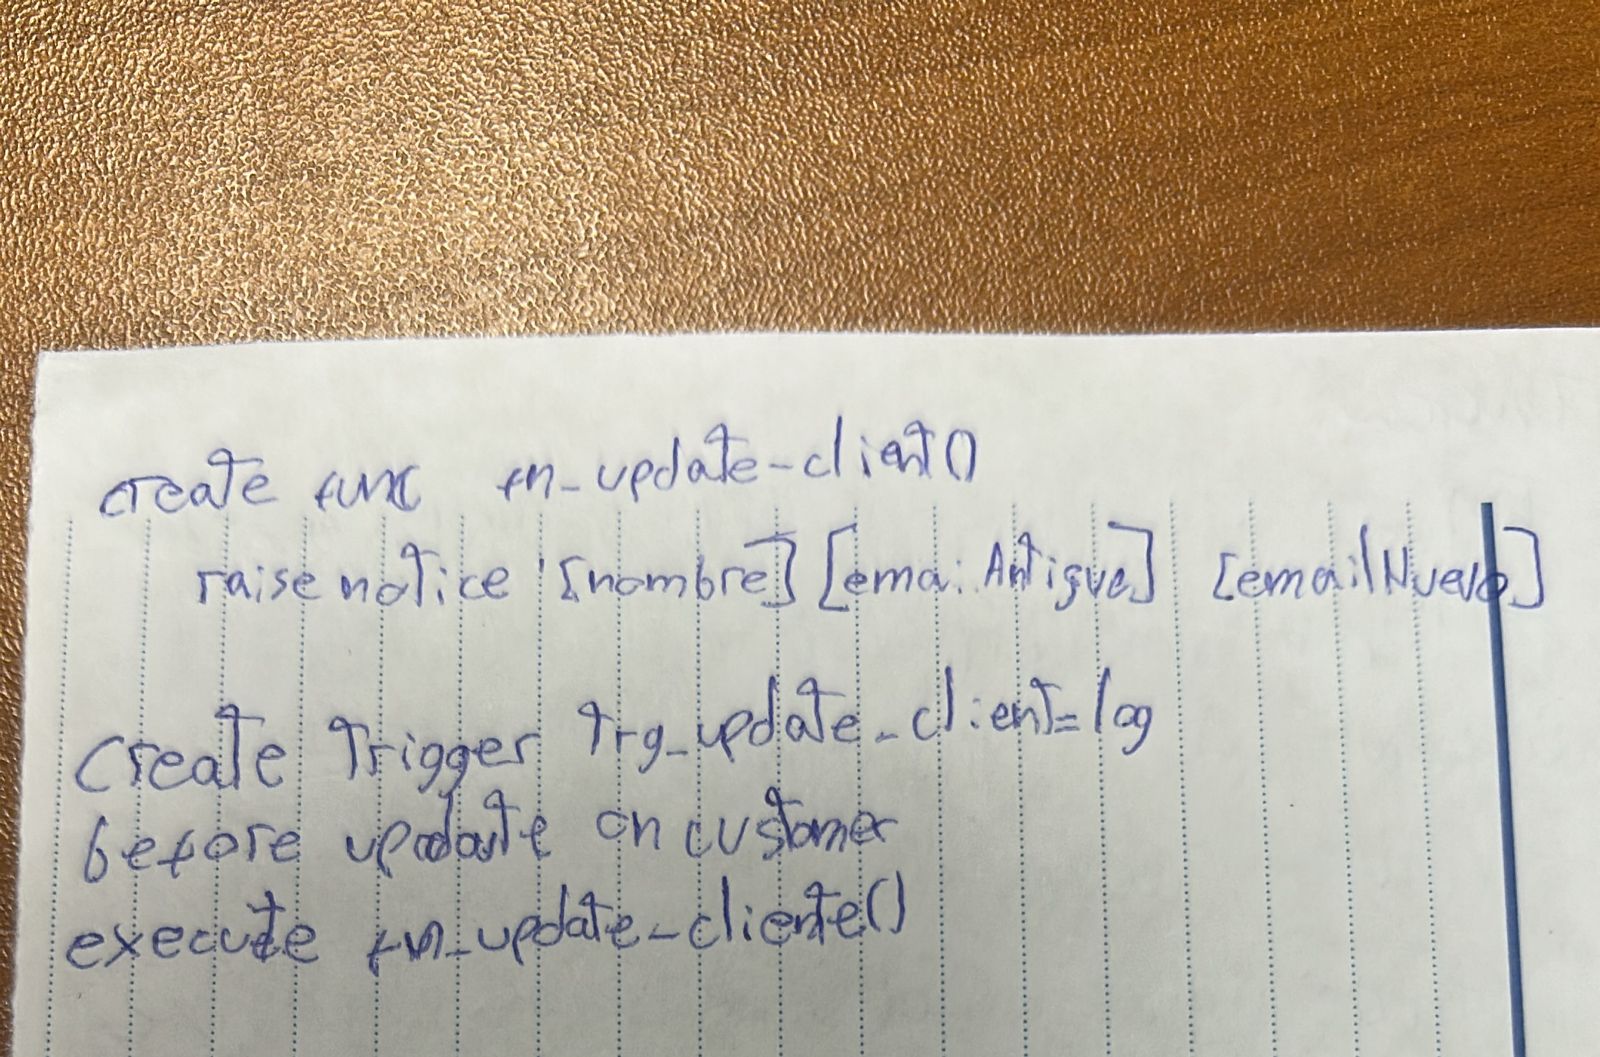 create func fn_update-client()
raise notice '[nombre] [emai Antigue] [emailNuevo]
Create Trigger trg_update_client=log
before update on customer
execute fn_update_cliente()